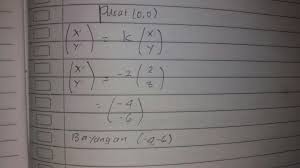 Pusat (0,0)
(x' y') = k (x y)
(x' y') = -2 (2 3)
= (-4 -6)
Bayangan (-4,-6)